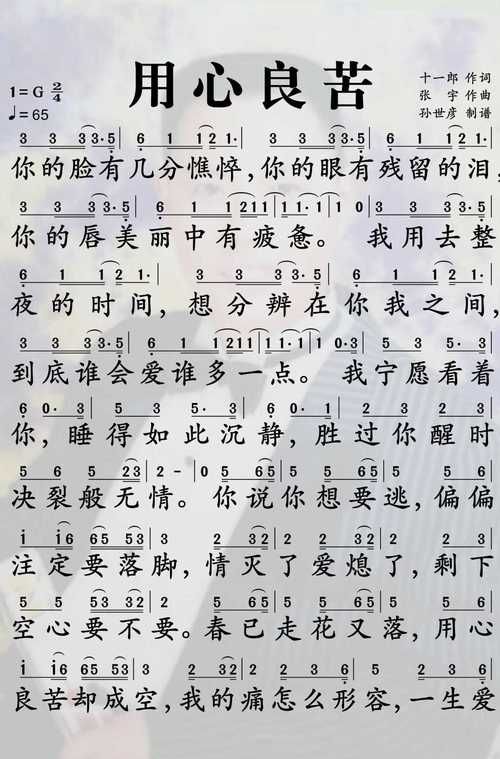 用心良苦
十一郎 作词
1=G 2/4
张 宇 作曲
♩=65
孙世彦 制谱
3 3 3 3·5 | 6 1 1 2 1· | 3 3 3 3·5 | 6 1 1 2 1· |
你的脸有几分憔悴,你的眼有残留的泪,
3 3 3 3·5 | 6 1 1 2 1 1 | 1 1·1 | 1 0 | 3 3 3 3·5 |
你的唇美丽中有疲惫。 我用去整
6 1 1 2 1· | 3 3 3 3·5 | 6 1 1 2 1· |
夜的时间,想分辨在你我之间,
3 3 3 3·5 | 6 1 1 2 1 1 | 1 1·1 | 1 0·3 | 5 3 5· 3 |
到底谁会爱谁多一点。 我宁愿看着
6 0· 3 | 5 3 5· 3 | 6 0· 1 | 2 2 2 3 |
你,睡得如此沉静,胜过你醒时
5 6 5 2 3 | 2 - | 0 5 6 5 | 5 5 6 5 | 5 5 6 |
决裂般无情。你说你想要逃,偏偏
i i 6 6 5 5 3 | 3 2 3 2 | 2 2 3 2 | 2 5 6 |
注定要落脚,情灭了爱熄了,剩下
5 5 5 3 3 2 | 2 5 6 5 | 5 5 6 5 | 5 5 6 |
空心要不要。春已走花又落,用心
i i 6 6 5 5 3 | 3 2 3 2 | 2 2 3 6 | 2 3 6 |
良苦却成空,我的痛怎么形容,一生爱